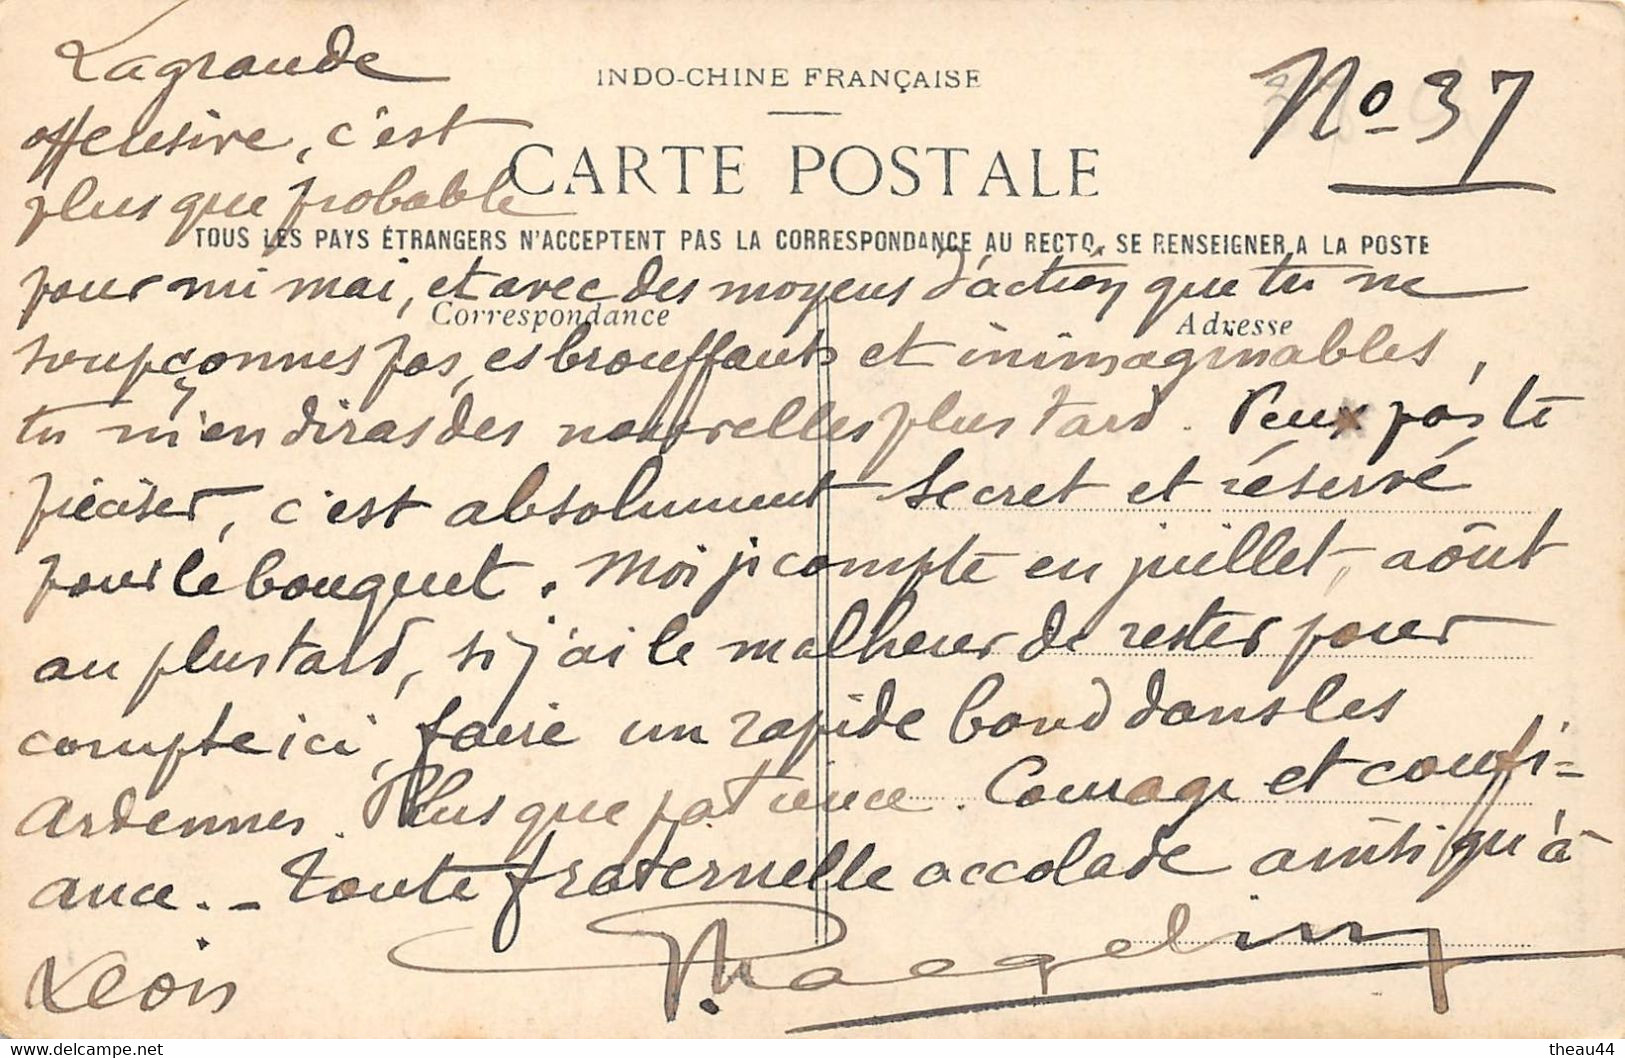 La grande
INDO-CHINE FRANÇAISE
No 37
offensive, c'est
CARTE POSTALE
plus que probable
TOUS LES PAYS ÉTRANGERS N'ACCEPTENT PAS LA CORRESPONDANCE AU RECTO, SE RENSEIGNER A LA POSTE
pour mi mai, et avec des moyens d'action que tu ne
Correspondance
Adresse
soupçonnes pas, esbrouffants et inimaginables,
tu m'en diras des nouvelles plus tard. Peux pas te
préciser, c'est absolument secret et réservé
pour le bouquet. Moi je compte en juillet, août
au plus tard, si j'ai le malheur de rester pour
compte ici, faire un rapide bond dans les
Ardennes. Plus que patience. Courage et confi=
ance. - Toute fraternelle accolade ainsi qu'à
Léon
theau44